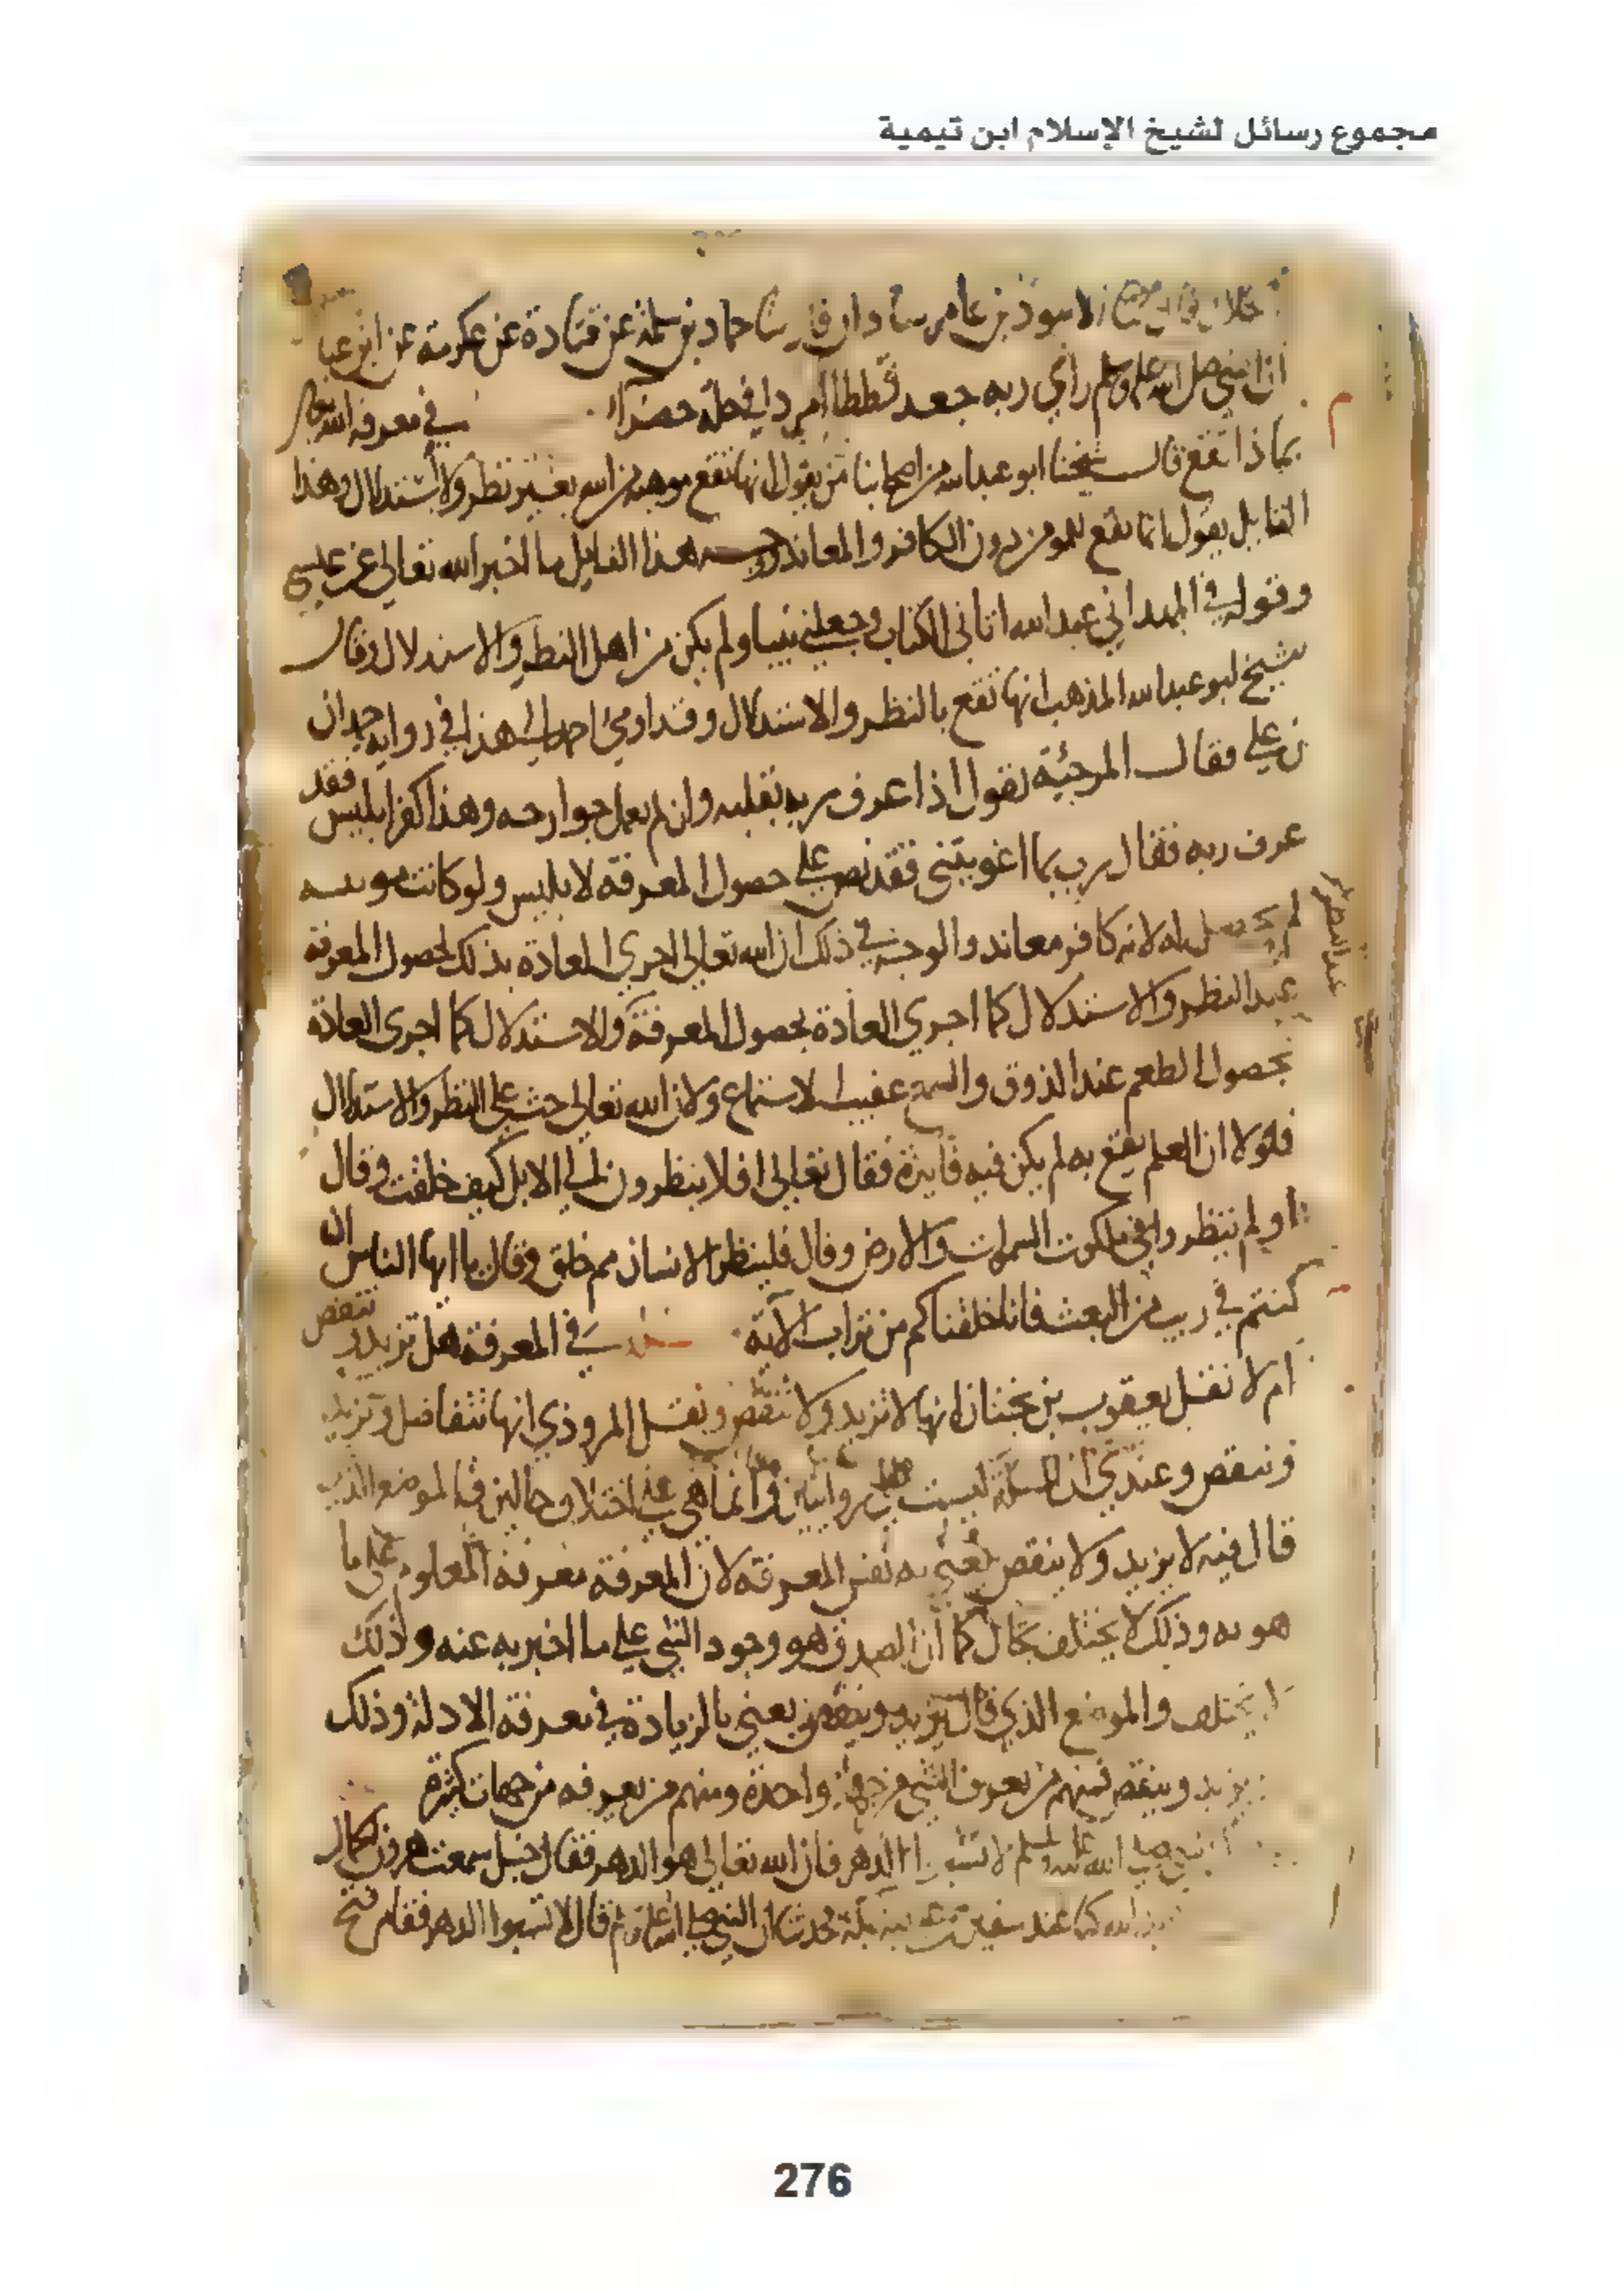 مجموع رسائل لشيخ الإسلام ابن تيمية
الاسود بن عامر حماد بن سلمة عن قتادة عن عكرمة عن ابن عبا
ان النبي صلى الله عليه وسلم راي ربه جعد قططا امرد في حلة خضراء في معرفة الله تعالى
بماذا تقع قال شيخنا ابو عبدالله من اصحابنا من يقول انها تقع موهبة من الله بغير نظر ولا استدلال وهذا
القايل يقول انما تقع للمومن دون الكافر والمعاند هذا القايل ما اخبر الله تعالى عن عيسى
وقوله في المهد اني عبد الله اتاني الكتاب وجعلني نبيا ولم يكن من اهل النظر والاستدلال وقال
شيخ ابو عبدالله المذهب انها تقع بالنظر والاستدلال وقد اومى احمد الى هذا في رواية حمدان
بن علي فقال المرجئة تقول اذا عرف ربه بقلبه وان لم يعمل جوارحه وهذا كفر ابليس فقد
عرف ربه فقال رب بما اغويتني فقد نص على حصول المعرفة لابليس ولو كانت موهبة
لم له لانه كافر معاند والوجه في ذلك ان الله تعالى اجري العادة بذلك لحصول المعرفة
عند النظر والاستدلال كما اجري العادة بحصول المعرفة والاستدلال كما اجرى العادة
بحصول الطعم عند الذوق والسمع عقيب الاستماع ولان الله تعالى حث على النظر والاستدلال
فلولا ان العلم يقع به لم يكن فيه فايدة فقال تعالى افلا ينظرون الى الابل كيف خلقت وقال
اولم ينظروا في ملكوت السموات والارض وقال فلينظر الانسان مم خلق وقال يا ايها الناس ان
كنتم في ريب من البعث فانا خلقناكم من تراب الاية في المعرفة هل تزيد وتنقص
ام لا نقل يعقوب بن بختان انها لا تزيد ولا تنقص ونقل المروذي انها تتفاضل وتزيد
وتنقص وعندي ان المسلة ليست على روايتين وانما هي على اختلاف حالين فالموضع الذي
قال فيه لا يزيد ولا ينقص يعني به نفس المعرفة لان المعرفة معرفة المعلوم على ما
هو به وذلك لا يختلف بحال كما ان الصدق هو وجود الشي على ما اخبر به عنه وذلك
لا يختلف والموضع الذي قال يزيد وينقص يعني بالزيادة في معرفة الادلة وذلك
يزيد وينقص فمنهم من يعرف الشي من جهة واحدة ومنهم من يعرفه من جهات كثيرة
النبي صلى الله عليه وسلم لا تسبوا الدهر فان الله تعالى هو الدهر فقال حنبل سمعت هرون الحمال
كنا عند سفين بن عيينة بمكة فحدثنا ان النبي صلى الله عليه وسلم قال لا تسبوا الدهر فقام فتح
عند النظر
276